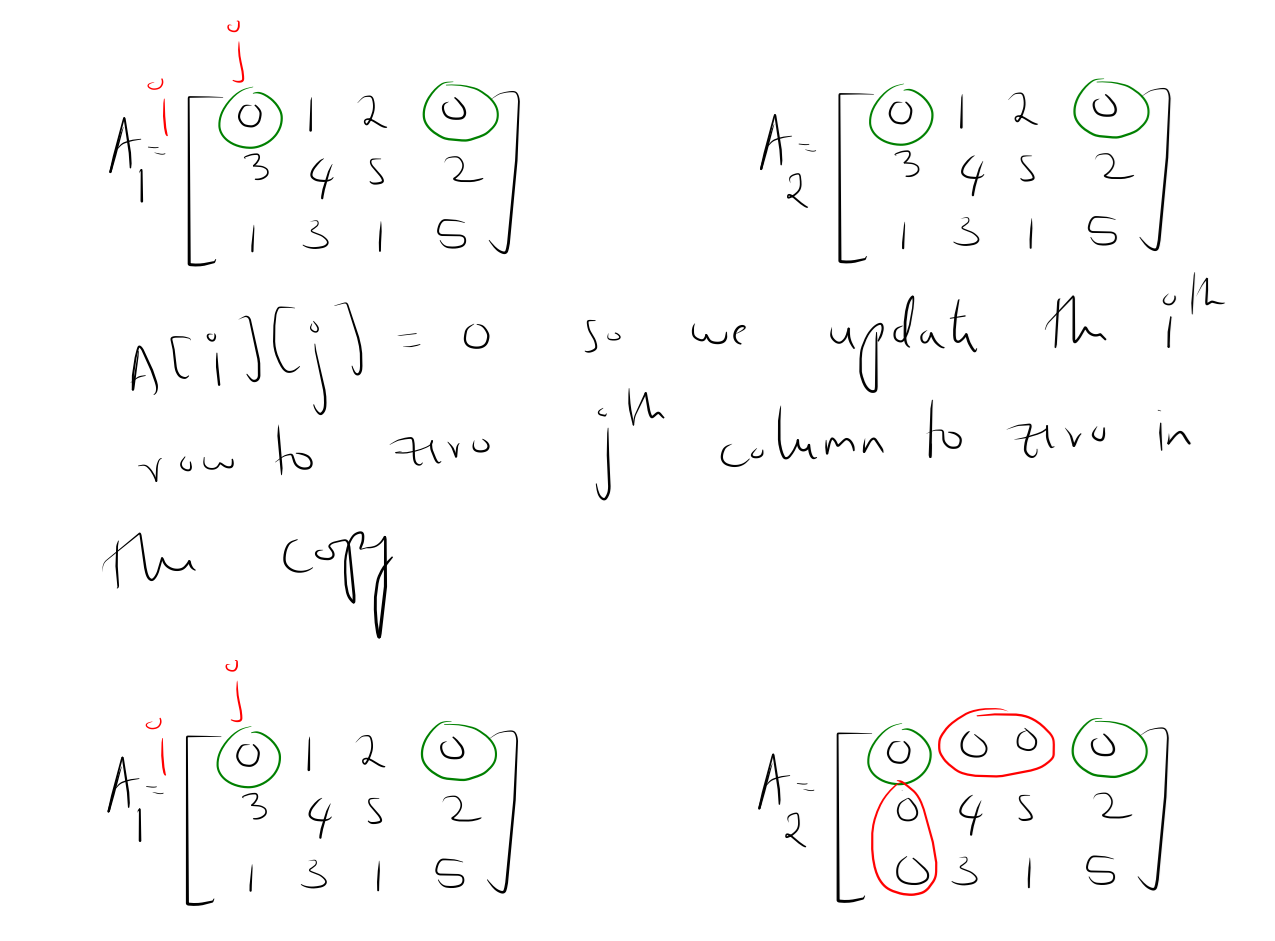 j
i
A1 = [ 0 1 2 0
3 4 5 2
1 3 1 5 ]
A2 = [ 0 1 2 0
3 4 5 2
1 3 1 5 ]
A[i][j] = 0 so we update the ith
row to zero jth column to zero in
the copy
j
i
A1 = [ 0 1 2 0
3 4 5 2
1 3 1 5 ]
A2 = [ 0 0 0 0
0 4 5 2
0 3 1 5 ]